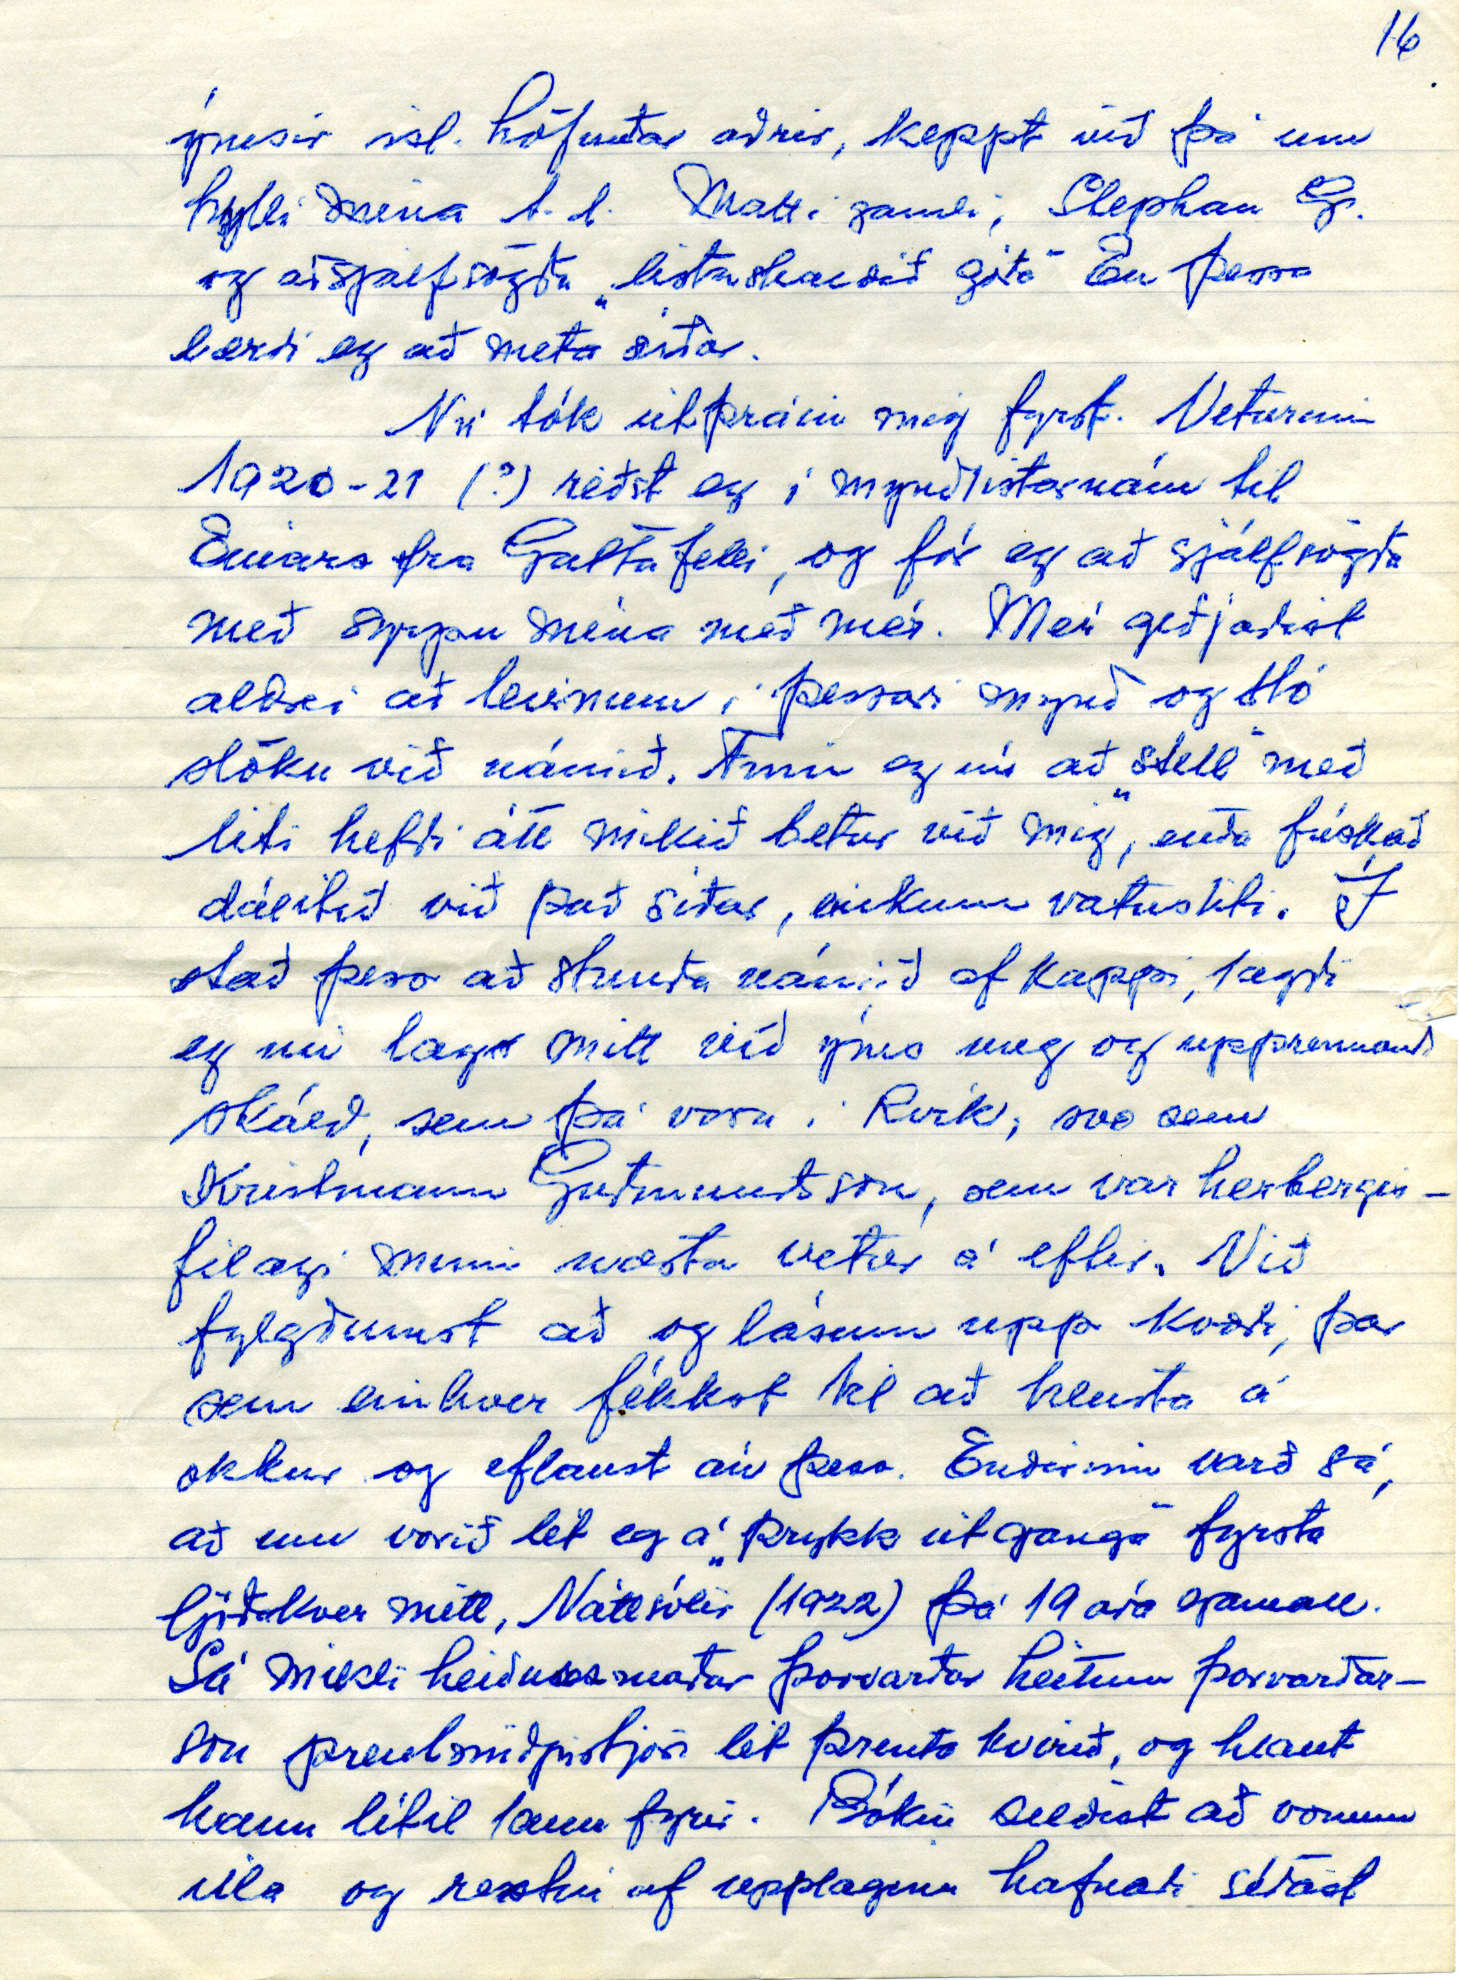 16
ýmsir ísl. höfundar aðrir, keppt við þá um
hylli mína t.d. Matti gamli, Stephan G.
og að sjálfsögðu „listaskáldið góða" En þessa
lærði eg að meta síðar.
Nú tók útþráin mig fyrst. Veturinn
1920-21 (?) réðst eg í myndlistarnám til
Einars frá Galtafelli, og fór eg að sjálfsögðu
með syrpu mína með mér. Mér geðjaðist
aldrei að leirnum í þessari mynd og sló
slöku við námið. Finn eg nú að „stell" með
liti hefði átt mikið betur við mig, enda fúskað
dálítið við það síðar, einkum vatnsliti. Í
stað þess að stunda námið af kappi, lagði
eg nú lag mitt við ýms ung og upprennandi
skáld, sem þá voru í Rvík, svo sem
Kristmann Guðmundsson, sem var herbergis-
félagi minn næsta vetur á eftir. Við
fylgdumst að og lásum upp kvæði, þar
sem einhver fékkst til að hlusta á
okkur og eflaust án þess. Endirinn varð sá,
að um vorið lét eg á „þrykk út ganga" fyrsta
ljóðakver mitt, Náttsólir (1922) þá 19 ára gamall.
Sá mikli heiðursmaður Þorvarður heitinn Þorvarðar-
son prentsmiðjustjóri lét prenta kverið, og hlaut
hann lítil laun fyrir. Bókin seldist að vonum
illa og restin af upplaginu hafnaði síðast